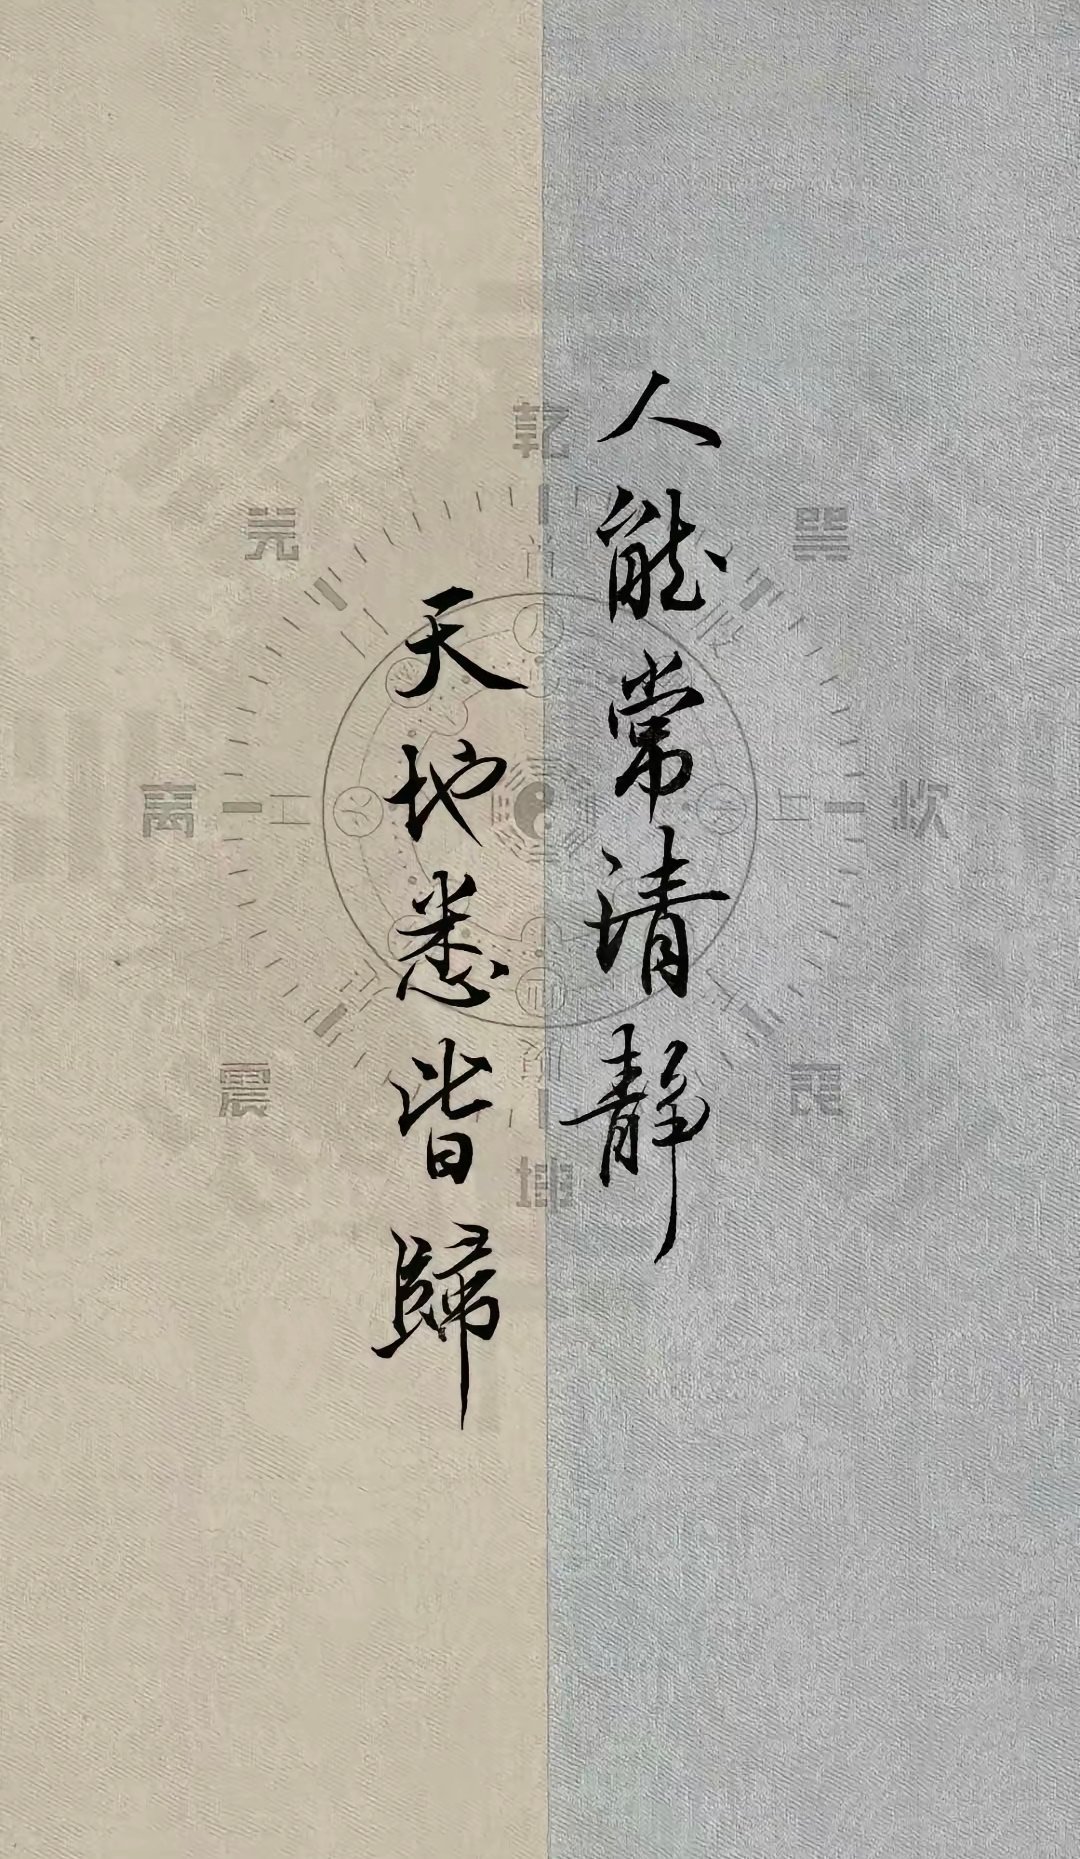 人能常清靜
天地悉皆歸
乾
兌
巽
离
坎
震
艮
坤